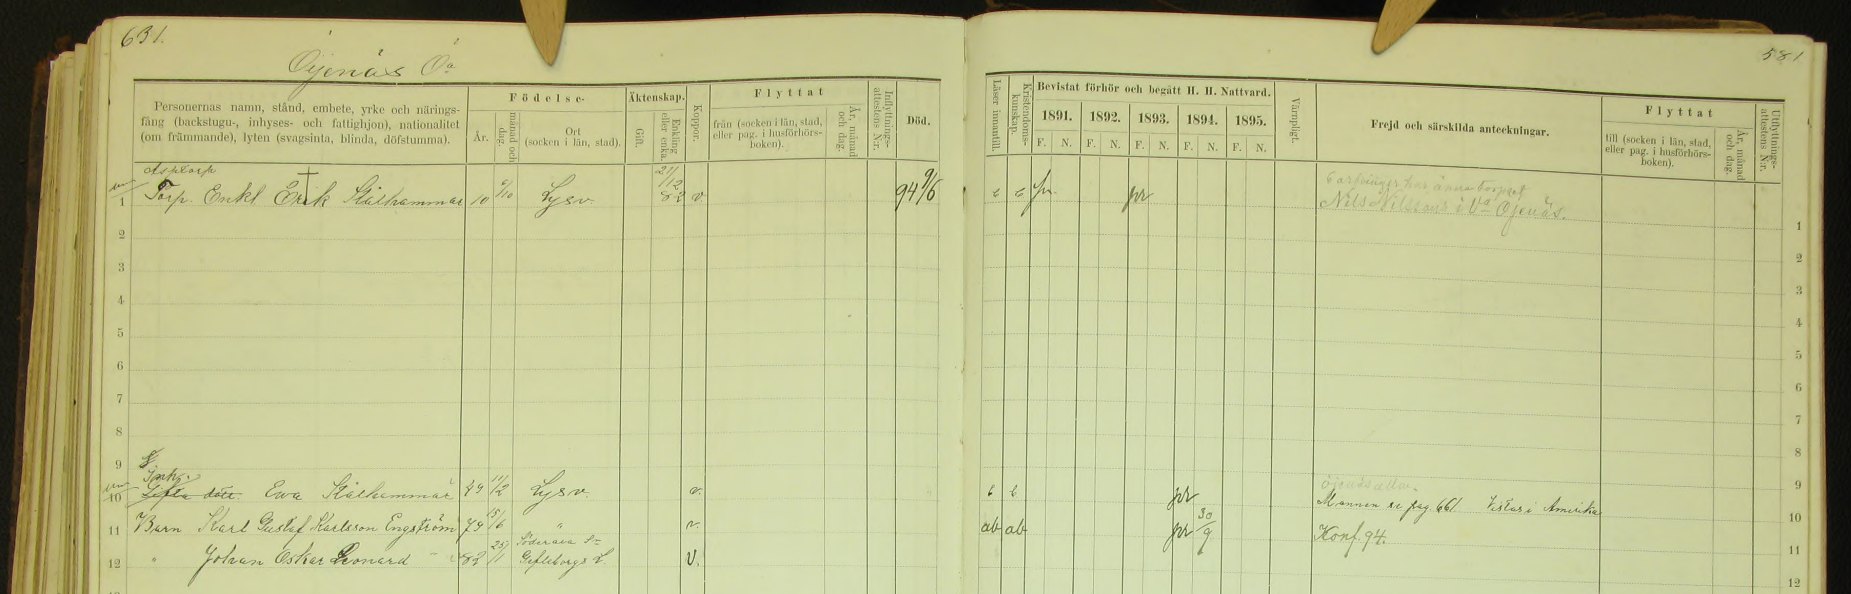 631.
581
Öjenäs Öa
Personernas namn, stånd, embete, yrke och närings-
fång (backstugu-, inhyses- och fattighjon), nationalitet
(om främmande), lyten (svagsinta, blinda, döfstumma).
Födelse-
År.
månad och
dag.
Ort
(socken i län, stad).
Äktenskap.
Gift.
Enkling
eller enka.
Koppor.
Flyttat
från (socken i län, stad,
eller pag. i husförhörs-
boken).
År, månad
och dag.
Inflyttnings-
attestens N:r.
Död.
Läser innantill.
Kristendoms-
kunskap.
Bevistat förhör och begått H. H. Nattvard.
1891. 1892. 1893. 1894. 1895.
F. N. F. N. F. N. F. N. F. N.
Vämpligt.
Frejd och särskilda anteckningar.
Flyttat
till (socken i län, stad,
eller pag. i husförhörs-
boken).
År, månad
och dag.
Utflyttnings-
attestens N:r.
Asptorp
1 Torp. Enkl Erik Stålhammar 10 /10 Lysv. 21/12 82 v. 94 9/6
b b fr. pr
Nils Nilssons i Öjenäs. 1
2 2
3 3
4 4
5 5
6 6
7 7
8 8
9 9
10 Gifta dott. Ewa Stålhammar 49 11/2 Lysv. v. b b pr Mannen se pag 661 Vistas i Amerika 10
11 Barn Karl Gustaf Karlsson Engström 79 15/6 " v. ab ab pr 30/9 Konf. 94. 11
12 " Johan Oskar Leonard " 82 25/1 Gefleborgs L. v. 12